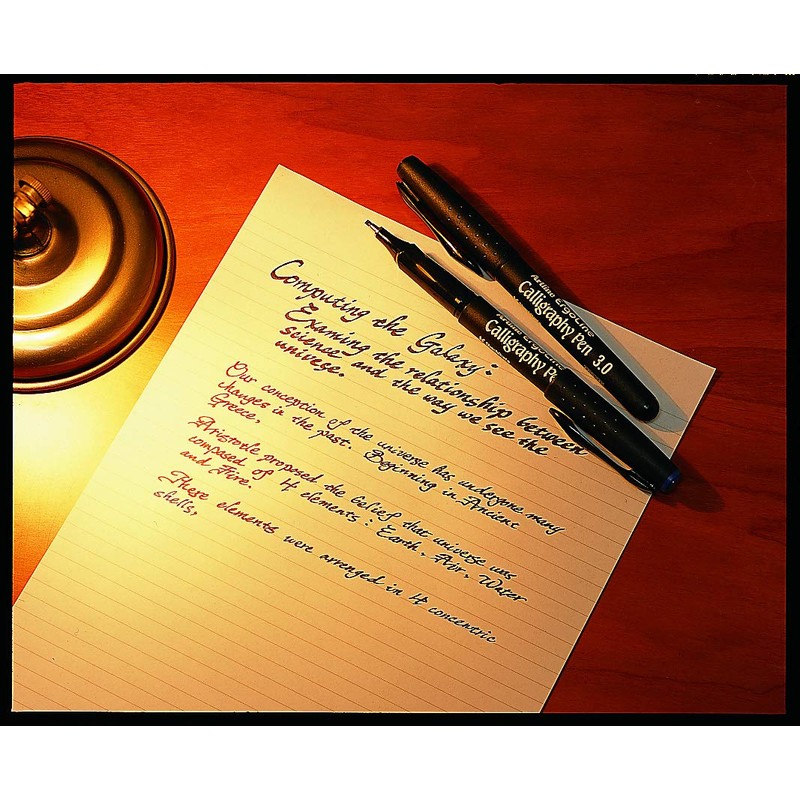 Computing the Galaxy:
Examing the relationship between
science and the way we see the
univese.
Our conception of the universe has undergone many
changes in the past. Beginning in Ancient
Greece,
Aristotle proposed the belief that universe was
composed of 4 elements: Earth, Air, Water
and Fire.
These elements were arrenged in 4 concentric
shells,
Artline Ergoline
Calligraphy Pen 3.0
Artline Ergoline
Calligraphy Pe